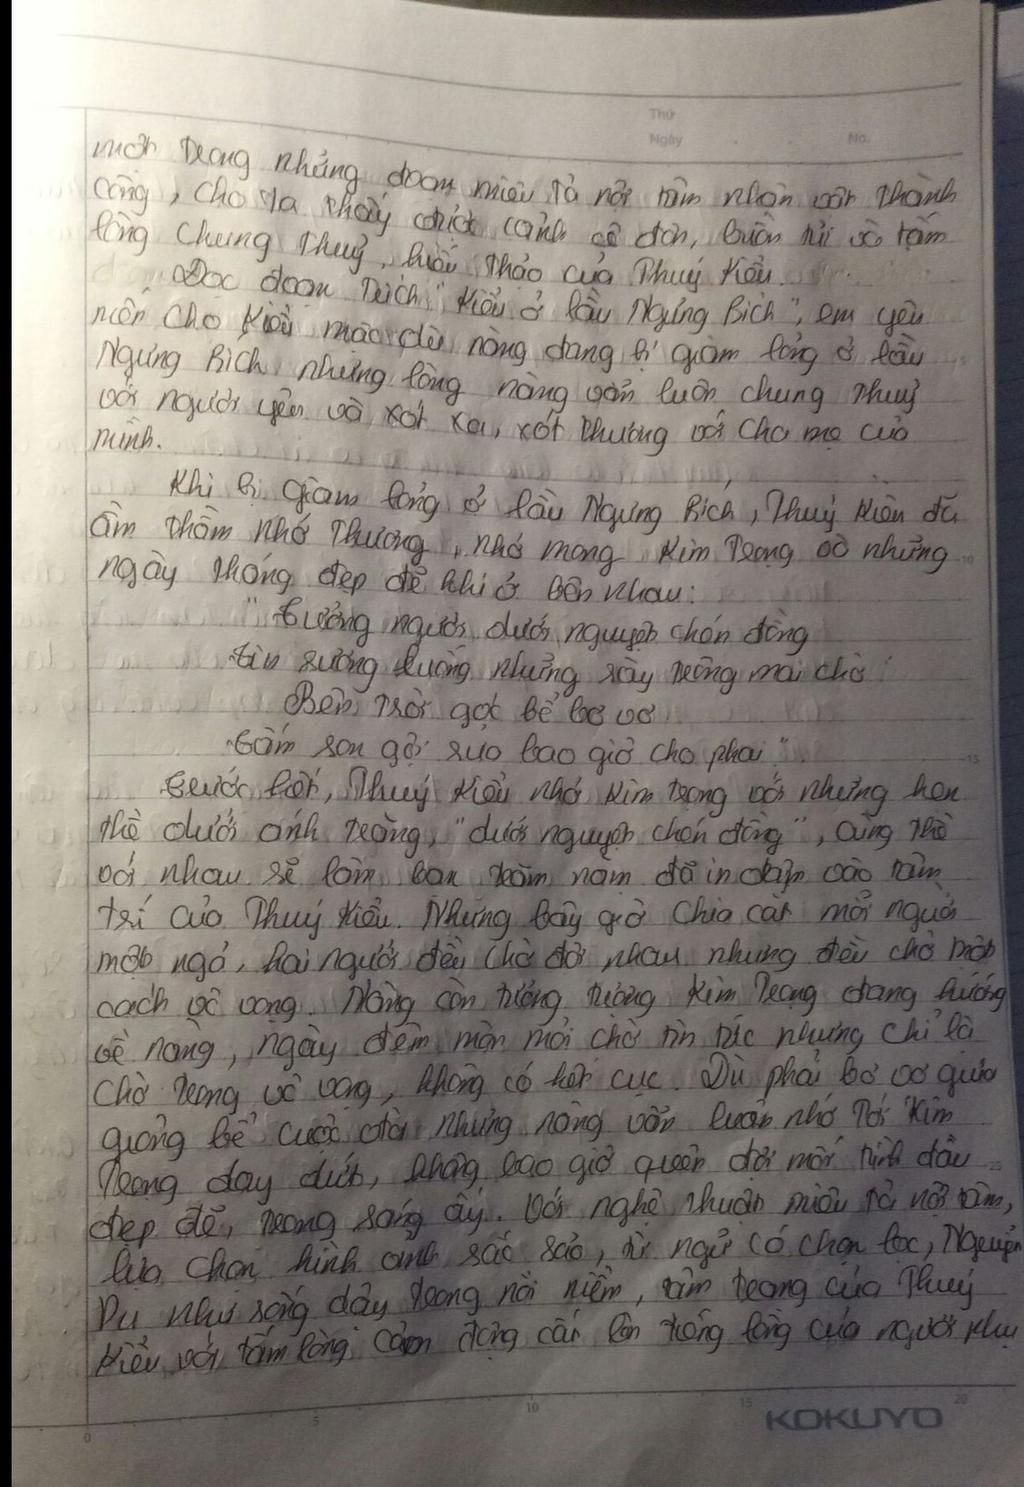 Thứ
Ngày No.
một trong những đoạn miêu tả nội tâm nhân vật thành
công, cho ta thấy được cảnh cô đơn, buồn tủi và tấm
lòng chung thuỷ, hiếu thảo của Thuý Kiều.
Đọc đoạn trích "Kiều ở lầu Ngưng Bích", em yêu
mến cho Kiều mặc dù nàng đang bị giam lỏng ở lầu
Ngưng Bích nhưng lòng nàng vẫn luôn chung thuỷ
với người yêu và xót xa, xót thương với cha mẹ của
mình.
Khi bị giam lỏng ở lầu Ngưng Bích, Thuý Kiều đã
âm thầm nhớ thương, nhớ mong Kim Trọng và những
ngày tháng đẹp đẽ khi ở bên nhau:
"Tưởng người dưới nguyệt chén đồng
Tin sương luống những rày trông mai chờ
Bên trời góc bể bơ vơ
Tấm son gột rửa bao giờ cho phai"
Trước hết, Thuý Kiều nhớ Kim Trọng với những hẹn
thề dưới ánh trăng, "dưới nguyệt chén đồng", cùng thề
với nhau sẽ làm bạn trăm năm đã in đậm vào tâm
trí của Thuý Kiều. Nhưng bây giờ chia cắt mỗi người
một ngả, hai người đều chờ đợi nhau nhưng đều chờ một
cách vô vọng. Nàng còn tưởng tượng Kim Trọng đang hướng
về nàng, ngày đêm mòn mỏi chờ tin tức nhưng chỉ là
chờ trong vô vọng, không có kết cục. Dù phải bơ vơ giữa
giông bể cuộc đời nhưng nàng vẫn luôn nhớ tới Kim
Trọng day dứt, không bao giờ quên đợi mối tình đầu
đẹp đẽ, trong sáng ấy. Với nghệ thuật miêu tả nội tâm,
lựa chọn hình ảnh sắc sảo, từ ngữ có chọn lọc, Nguyễn
Du như sống dậy trong nỗi niềm, tâm trạng của Thuý
Kiều với tấm lòng cảm động cất lên tiếng lòng của người phụ
KOKUYO
0 5 10 15 20